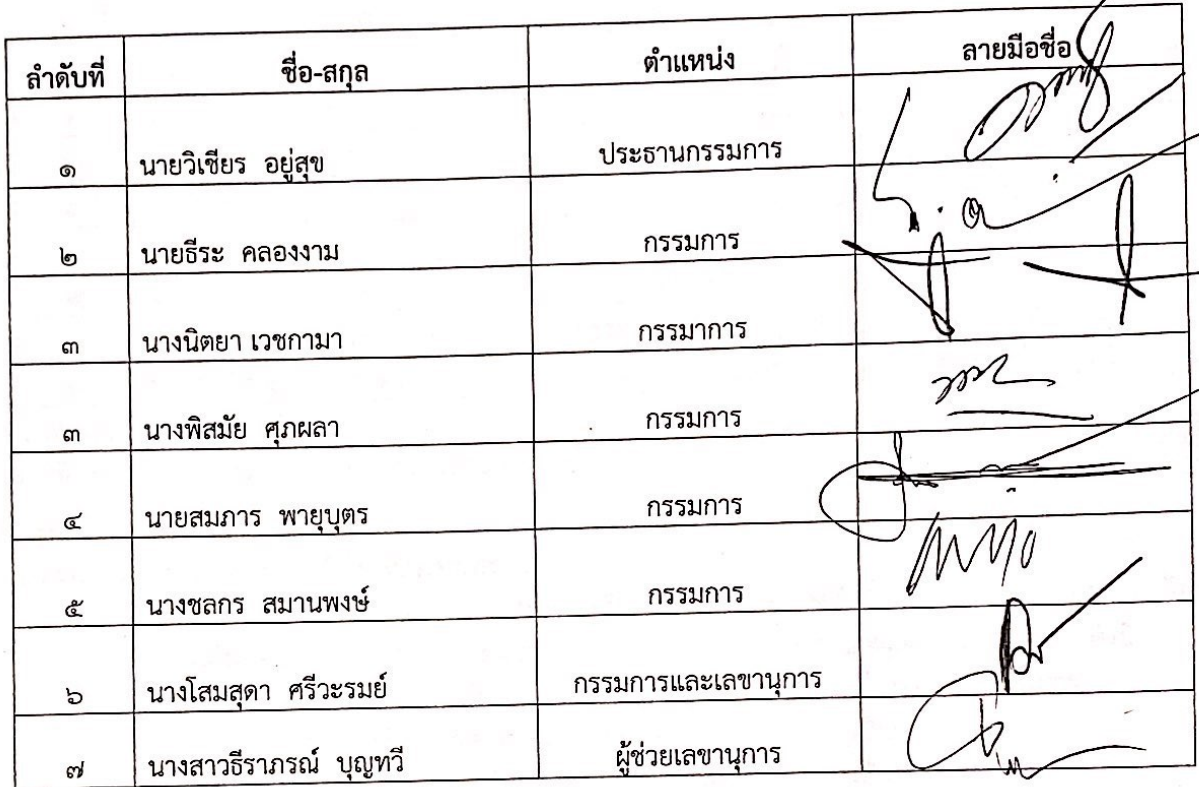 ลำดับที่ ชื่อ-สกุล ตำแหน่ง ลายมือชื่อ
๑ นายวิเชียร อยู่สุข ประธานกรรมการ
๒ นายธีระ คลองงาม กรรมการ
๓ นางนิตยา เวชกามา กรรมาการ
๓ นางพิสมัย ศุภผลา กรรมการ
๔ นายสมภาร พายุบุตร กรรมการ
๕ นางชลกร สมานพงษ์ กรรมการ
๖ นางโสมสุดา ศรีวะรมย์ กรรมการและเลขานุการ
๗ นางสาวธีราภรณ์ บุญทวี ผู้ช่วยเลขานุการ